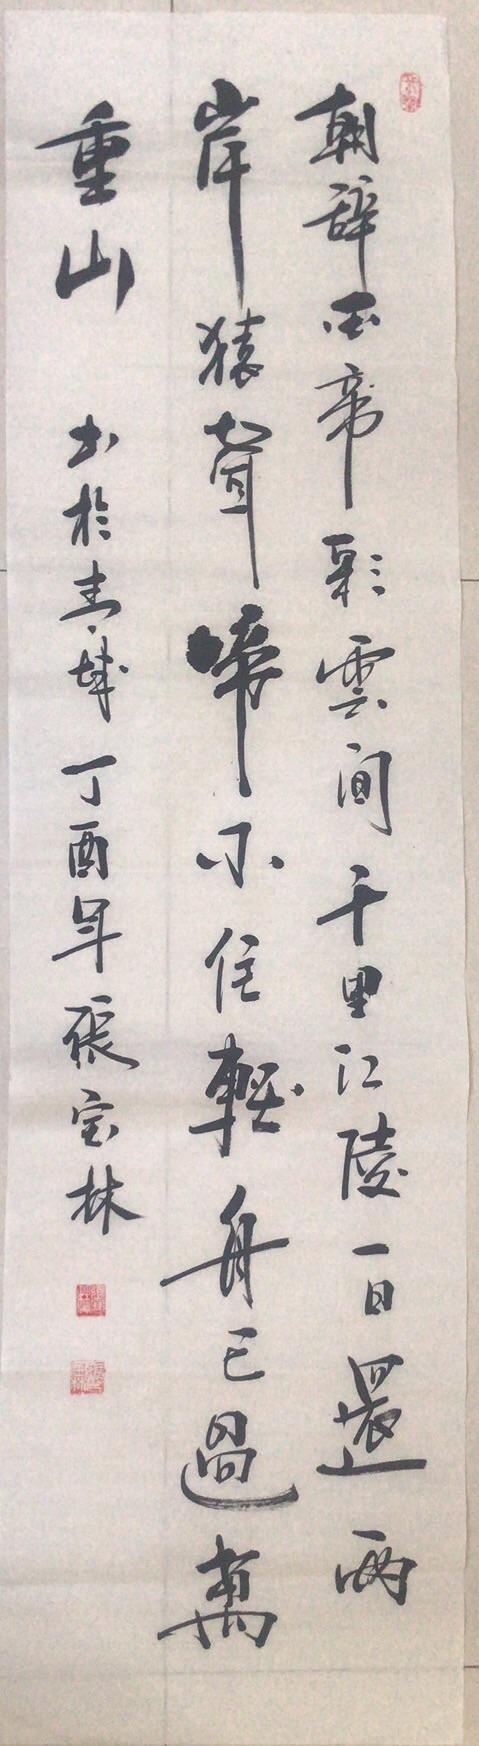 朝辭白帝彩雲间千里江陵一日還兩
岸猿聲啼不住輕舟已過萬
重山
书於青城丁酉年張宝林